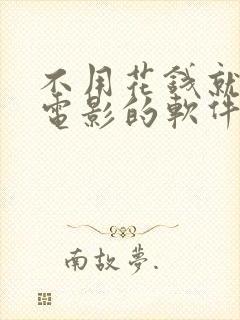 不用花錢就
電影的軟件
南故夢.